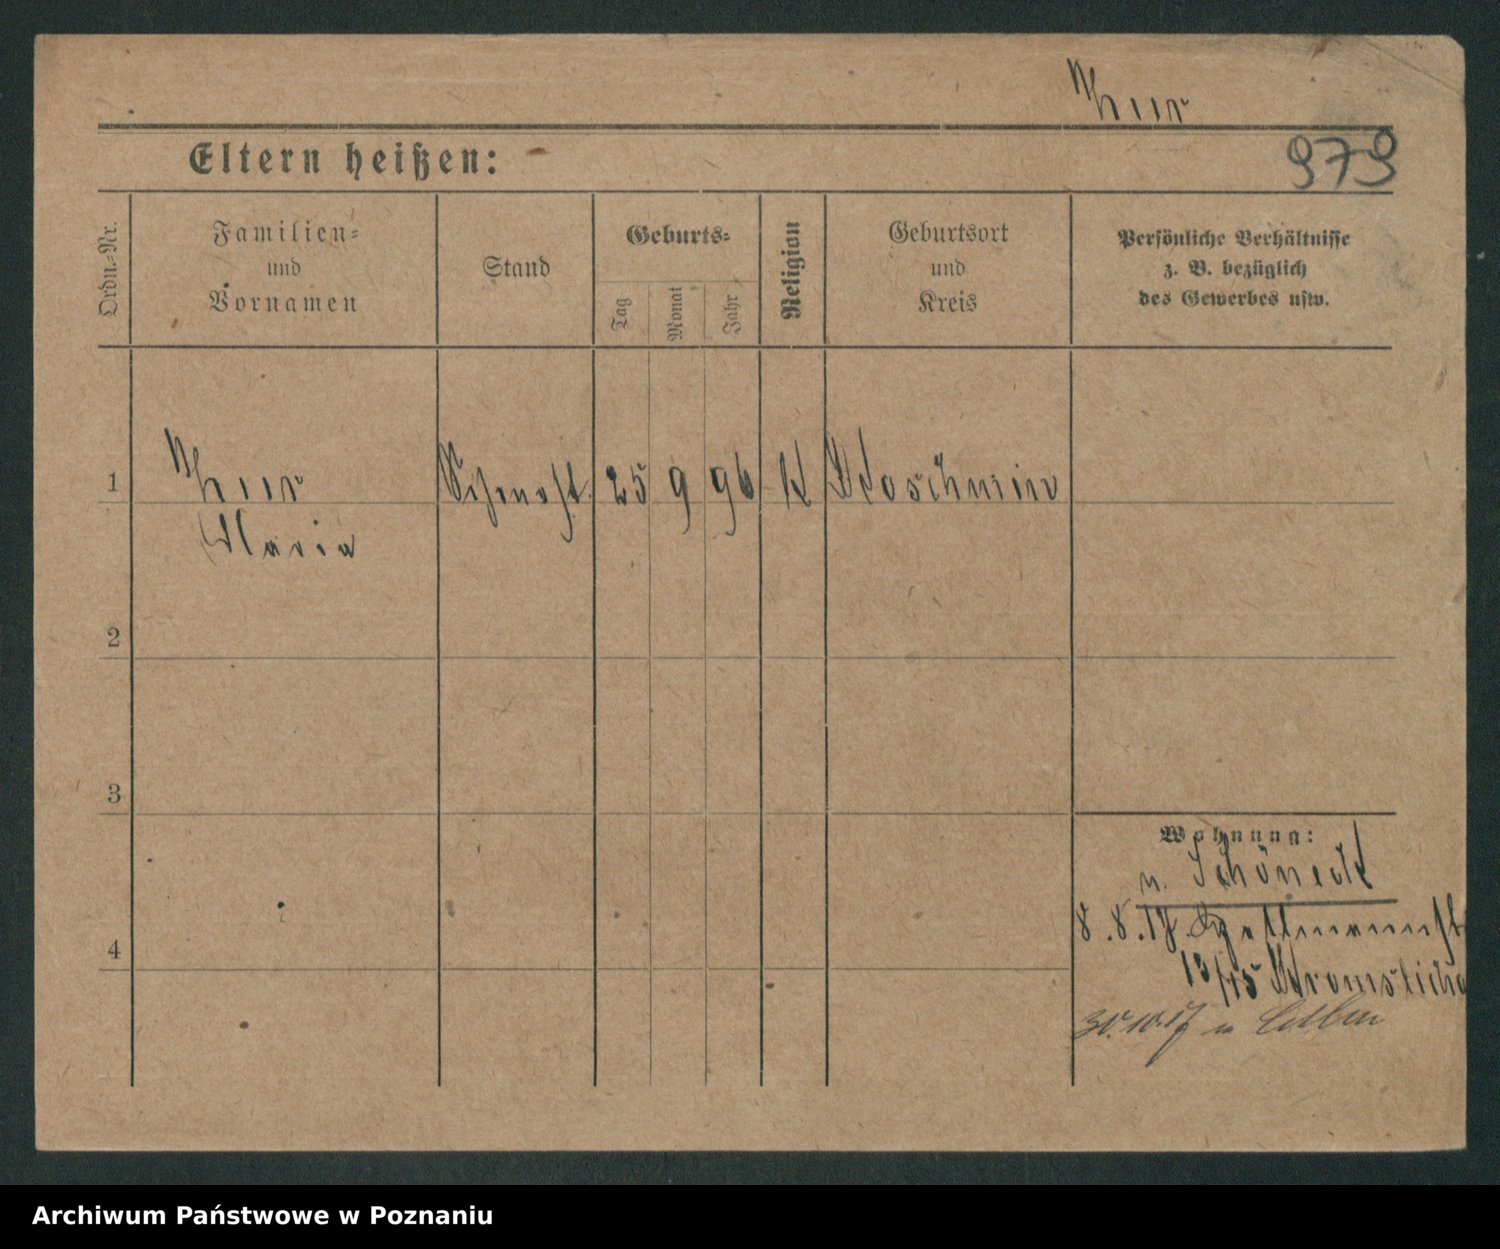 979
Eltern heißen:
Ordn.-Nr.
Familien-
und
Vornamen
Stand
Geburts-
Tag
Monat
Jahr
Religion
Geburtsort
und
Kreis
Persönliche Verhältnisse
z. B. bezüglich
des Gewerbes usw.
1
25 9 96 K Koschmin
Maria
2
3
4
Wohnung:
n. Schöneck
8.8.17.
13/15
30.10.17 n
Archiwum Państwowe w Poznaniu